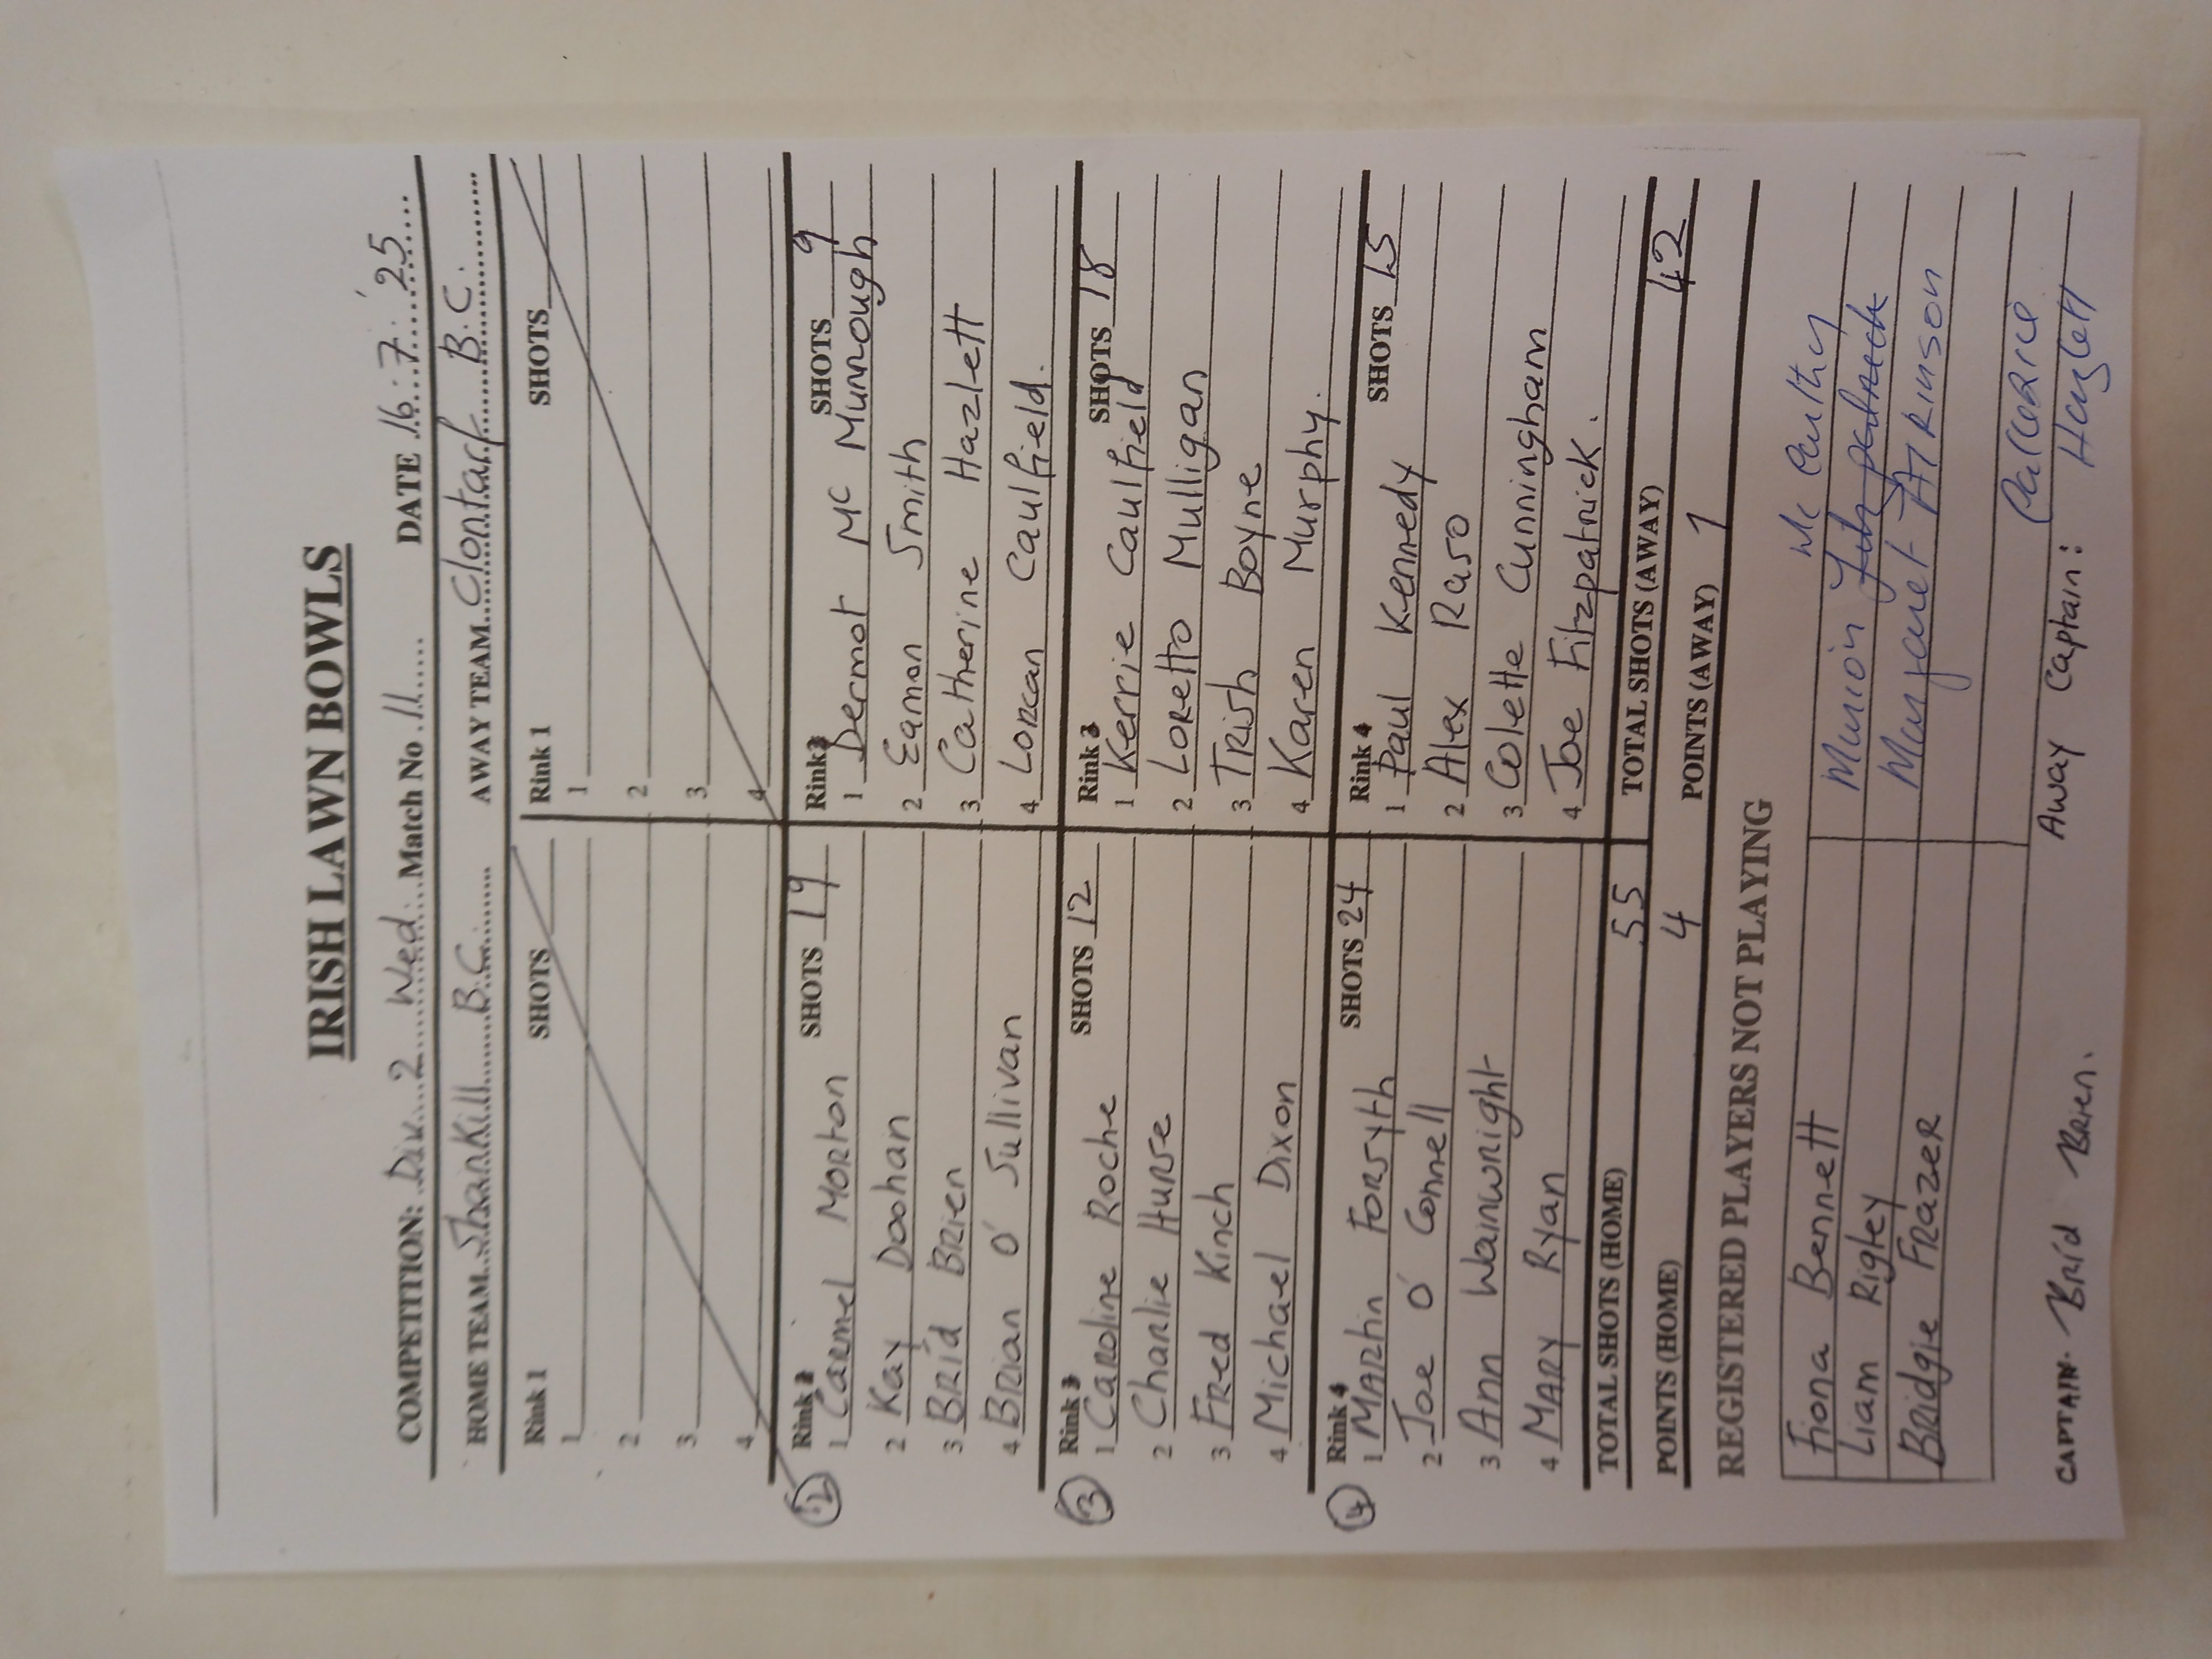 IRISH LAWN BOWLS
COMPETITION: Div. 2 Wed. Match No 11 DATE 16.7.'25
HOME TEAM Shankill B.C. AWAY TEAM Clontarf B.C.
Rink 1 SHOTS Rink 1 SHOTS
1 1
2 2
3 3
4 4
② Rink 2 SHOTS 19 Rink 2 SHOTS 9
1 Carmel Morton 1 Dermot Mc Munnough
2 Kay Doohan 2 Eamon Smith
3 Bríd Brien 3 Catherine Hazlett
4 Brian O' Sullivan 4 Lorcan Caulfield.
③ Rink 3 SHOTS 12 Rink 3 SHOTS 18
1 Caroline Roche 1 Kerrie Caulfield
2 Charlie Hurse 2 Loretto Mulligan
3 Fred Kinch 3 Trish Boyne
4 Michael Dixon 4 Karen Murphy.
④ Rink 4 SHOTS 24 Rink 4 SHOTS 15
1 Martin Forsyth 1 Paul Kennedy
2 Joe O' Connell 2 Alex Raso
3 Ann Wainwright 3 Colette Cunningham
4 Mary Ryan 4 Joe Fitzpatrick.
TOTAL SHOTS (HOME) 55 TOTAL SHOTS (AWAY) 42
POINTS (HOME) 4 POINTS (AWAY) 1
REGISTERED PLAYERS NOT PLAYING
Mc Carthy
Fiona Bennett Marion Fitzpatrick
Liam Rigley Margaret ATKINSON
Bridgie Frazer
CAPTAIN. Bríd Brien. Away Captain: Catherine
Hazlett